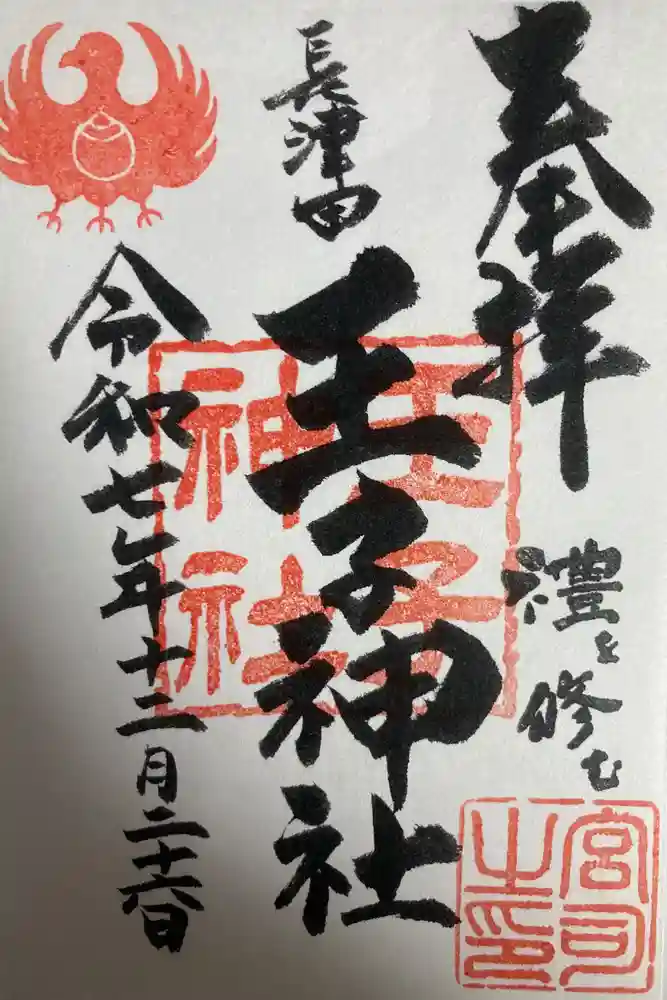 奉拝
禮を修む
宮司之印
長津田
王子神社
王子神社
令和七年十二月二十六日